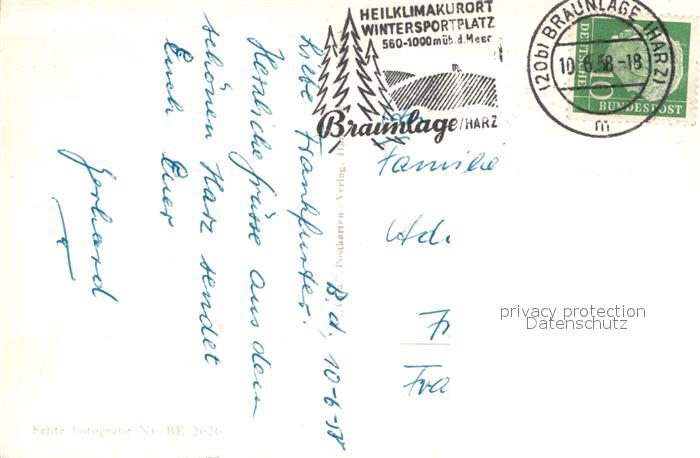 HEILKLIMAKURORT
WINTERSPORTPLATZ
560-1000 müb.d.Meer
Braunlage/HARZ
(20b) BRAUNLAGE (HARZ)
10.6.58-18
m
10
DEUTSCHE
BUNDESPOST
B. d. 10-6-58
Liebe Frankfurter!
Herzliche Grüsse aus dem
schönen Harz sendet
Euch Euer
Gerhard
Familie
Ad
F
Fra
Postkarten - Verlag
Echte Fotografie Nr. BK 2626
privacy protection
Datenschutz